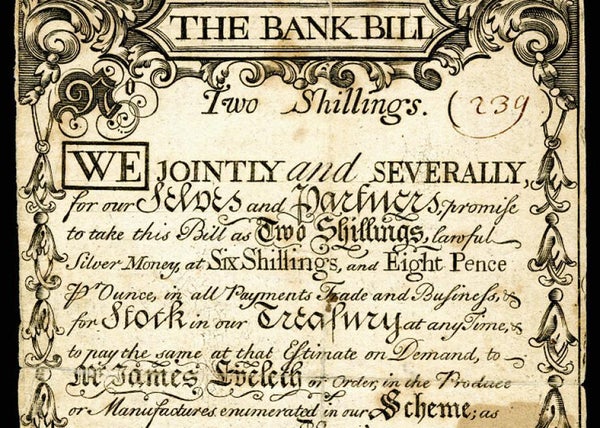 THE BANK BILL
No Two Shillings. (239
WE JOINTLY and SEVERALLY,
for our Selves and Partners, promise
to take this Bill as Two Shillings, lawful
Silver Money, at Six Shillings, and Eight Pence
Pr Ounce, in all Payments Trade and Business, &
for Stock in our Treasury at any Time, &
to pay the same at that Estimate on Demand, to
Mr James Eveleth or Order, in the Produce
or Manufactures enumerated in our Scheme; as